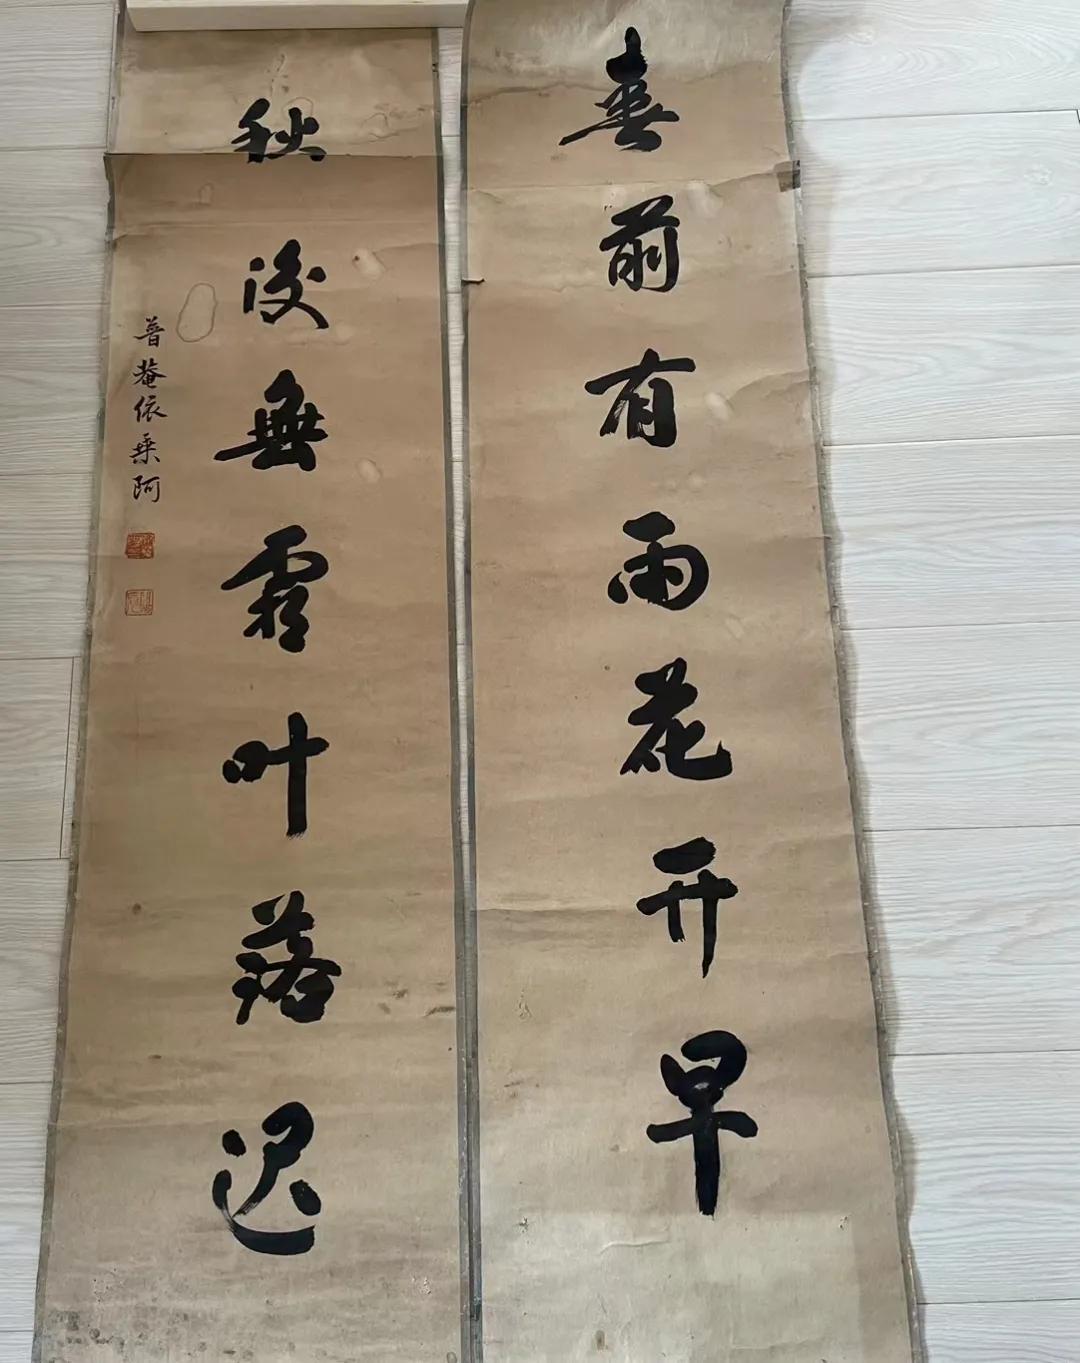 春前有雨花开早
秋後無霜叶落迟
普菴依乘阿